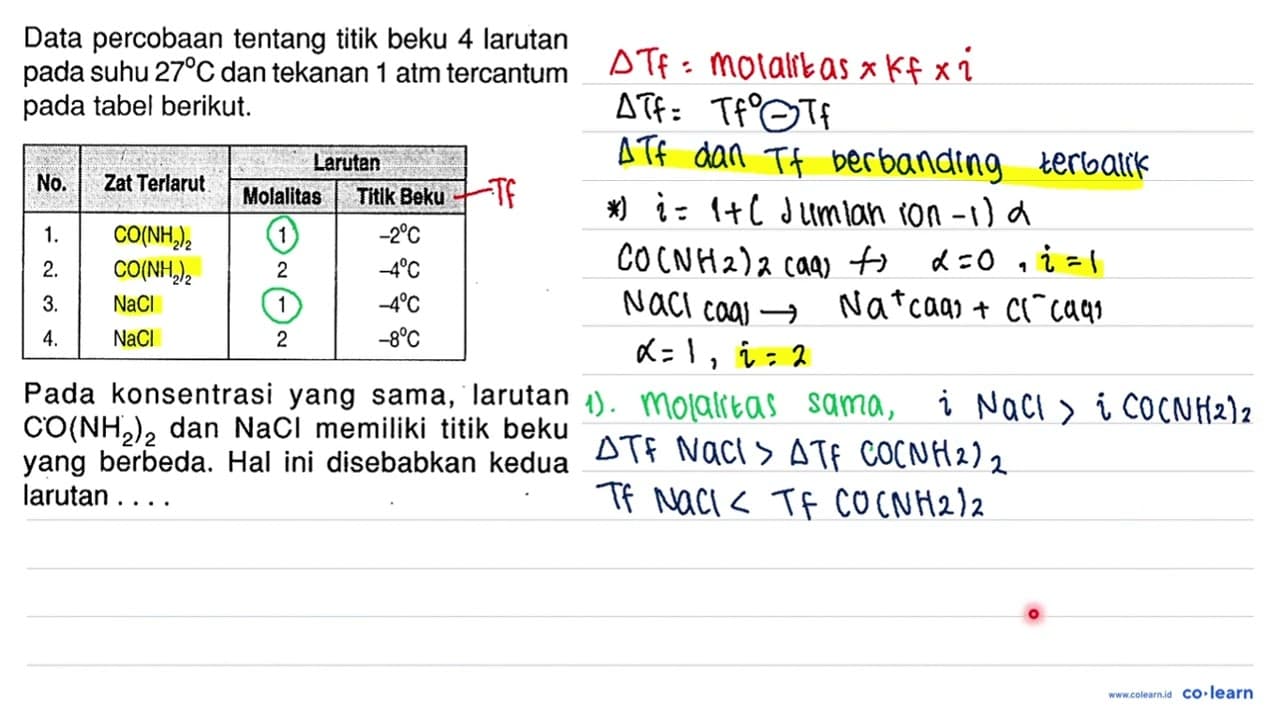 Data percobaan tentang titik beku 4 larutan
pada suhu 27°C dan tekanan 1 atm tercantum
pada tabel berikut.
No. Zat Terlarut Larutan
Molalitas Titik Beku
1. CO(NH₂)₂ 1 –2°C
2. CO(NH₂)₂ 2 –4°C
3. NaCl 1 –4°C
4. NaCl 2 –8°C
Tf
Pada konsentrasi yang sama, larutan
CO(NH₂)₂ dan NaCl memiliki titik beku
yang berbeda. Hal ini disebabkan kedua
larutan . . . .
ΔTf = molalitas x Kf x i
ΔTf = Tf° - Tf
ΔTf dan Tf berbanding terbalik
*) i = 1 + ( Jumlah ion - 1) α
CO(NH2)2 (aq) ↛ α = 0 , i = 1
NaCl (aq) → Na⁺(aq) + Cl⁻(aq)
α = 1 , i = 2
1). Molalitas sama, i NaCl > i CO(NH2)2
ΔTf NaCl > ΔTf CO(NH2)2
Tf NaCl < Tf CO(NH2)2
www.colearn.id co·learn